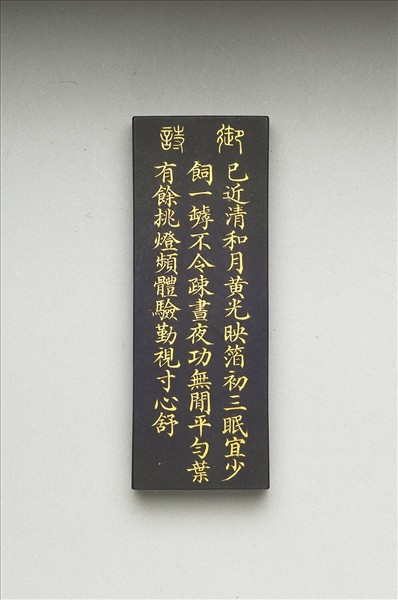 御詩
已近清和月黄光映箔初三眠宜少
飼一罅不令疎晝夜功無閒平勻葉
有餘挑燈頻體驗勤視寸心舒